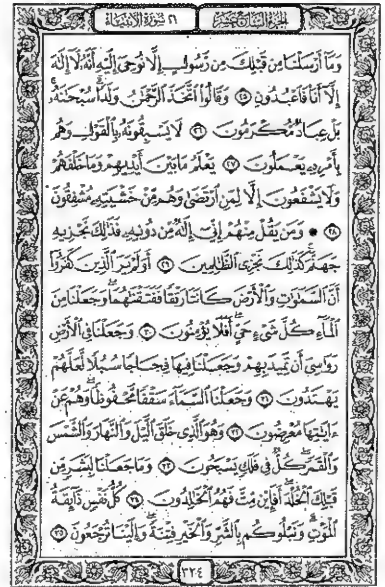 الجزء السابع عشر ٢١ سورة الأنبياء
وَمَآ أَرْسَلْنَا مِن قَبْلِكَ مِن رَّسُولٍ إِلَّا نُوحِىٓ إِلَيْهِ أَنَّهُۥ لَآ إِلَٰهَ
إِلَّآ أَنَا۠ فَٱعْبُدُونِ ٢٥ وَقَالُوا۟ ٱتَّخَذَ ٱلرَّحْمَٰنُ وَلَدًا ۗ سُبْحَٰنَهُۥ ۚ
بَلْ عِبَادٌ مُّكْرَمُونَ ٢٦ لَا يَسْبِقُونَهُۥ بِٱلْقَوْلِ وَهُم
بِأَمْرِهِۦ يَعْمَلُونَ ٢٧ يَعْلَمُ مَا بَيْنَ أَيْدِيهِمْ وَمَا خَلْفَهُمْ
وَلَا يَشْفَعُونَ إِلَّا لِمَنِ ٱرْتَضَىٰ وَهُم مِّنْ خَشْيَتِهِۦ مُشْفِقُونَ
٢٨ ۞ وَمَن يَقُلْ مِنْهُمْ إِنِّىٓ إِلَٰهٌ مِّن دُونِهِۦ فَذَٰلِكَ نَجْزِيهِ
جَهَنَّمَ ۚ كَذَٰلِكَ نَجْزِى ٱلظَّٰلِمِينَ ٢٩ أَوَلَمْ يَرَ ٱلَّذِينَ كَفَرُوٓا۟
أَنَّ ٱلسَّمَٰوَٰتِ وَٱلْأَرْضَ كَانَتَا رَتْقًا فَفَتَقْنَٰهُمَا ۖ وَجَعَلْنَا مِنَ
ٱلْمَآءِ كُلَّ شَىْءٍ حَىٍّ ۖ أَفَلَا يُؤْمِنُونَ ٣٠ وَجَعَلْنَا فِى ٱلْأَرْضِ
رَوَٰسِىَ أَن تَمِيدَ بِهِمْ وَجَعَلْنَا فِيهَا فِجَاجًا سُبُلًا لَّعَلَّهُمْ
يَهْتَدُونَ ٣١ وَجَعَلْنَا ٱلسَّمَآءَ سَقْفًا مَّحْفُوظًا ۖ وَهُمْ عَنْ
ءَايَٰتِهَا مُعْرِضُونَ ٣٢ وَهُوَ ٱلَّذِى خَلَقَ ٱلَّيْلَ وَٱلنَّهَارَ وَٱلشَّمْسَ
وَٱلْقَمَرَ ۖ كُلٌّ فِى فَلَكٍ يَسْبَحُونَ ٣٣ وَمَا جَعَلْنَا لِبَشَرٍ مِّن
قَبْلِكَ ٱلْخُلْدَ ۖ أَفَإِي۟ن مِّتَّ فَهُمُ ٱلْخَٰلِدُونَ ٣٤ كُلُّ نَفْسٍ ذَآئِقَةُ
ٱلْمَوْتِ ۗ وَنَبْلُوكُم بِٱلشَّرِّ وَٱلْخَيْرِ فِتْنَةً ۖ وَإِلَيْنَا تُرْجَعُونَ ٣٥
٣٢٤